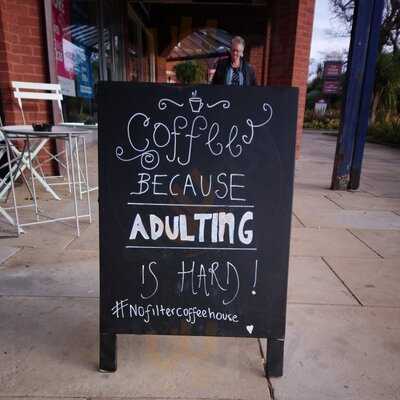 Coffee
BECAUSE
ADULTING
IS HARD!
#Nofiltercoffeehouse